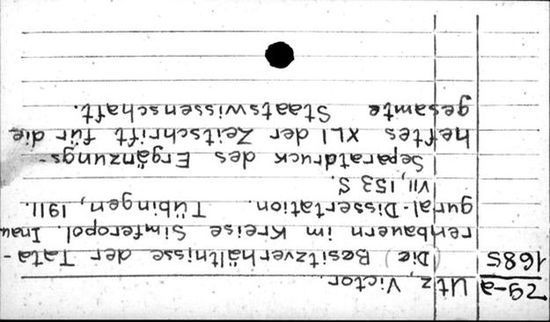 29-a Utz, Victor.
1685 (Die) Besitzverhältnisse der Tata-
renbauern im Kreise Simferopol. Inau
gural-Dissertation. Tübingen, 1911.
VII, 153 S.
Separatdruck des Ergänzungs-
heftes XLI der Zeitschrift für die
gesamte Staatswissenschaft.